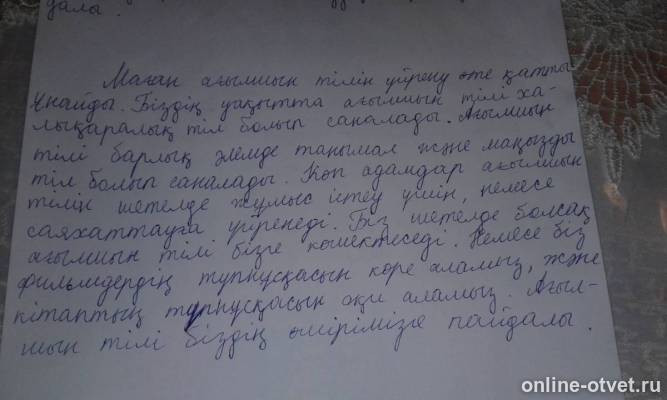 дала.
Маған ағылшын тілін үйрену өте қатты
ұнайды. Біздің уақытта ағылшын тілі ха-
лықаралық тіл болып саналады. Ағылшын
тілі барлық әлемде танымал және маңызды
тіл болып саналады. Көп адамдар ағылшын
тілін шетелде жұмыс істеу үшін, немесе
саяхаттауға үйренеді. Біз шетелде болсақ
ағылшын тілі бізге көмектеседі. Немесе біз
фильмдердің түпнұсқасын көре аламыз, және
кітаптың түпнұсқасын оқи аламыз. Ағыл-
шын тілі біздің өмірімізге пайдалы.
online-otvet.ru